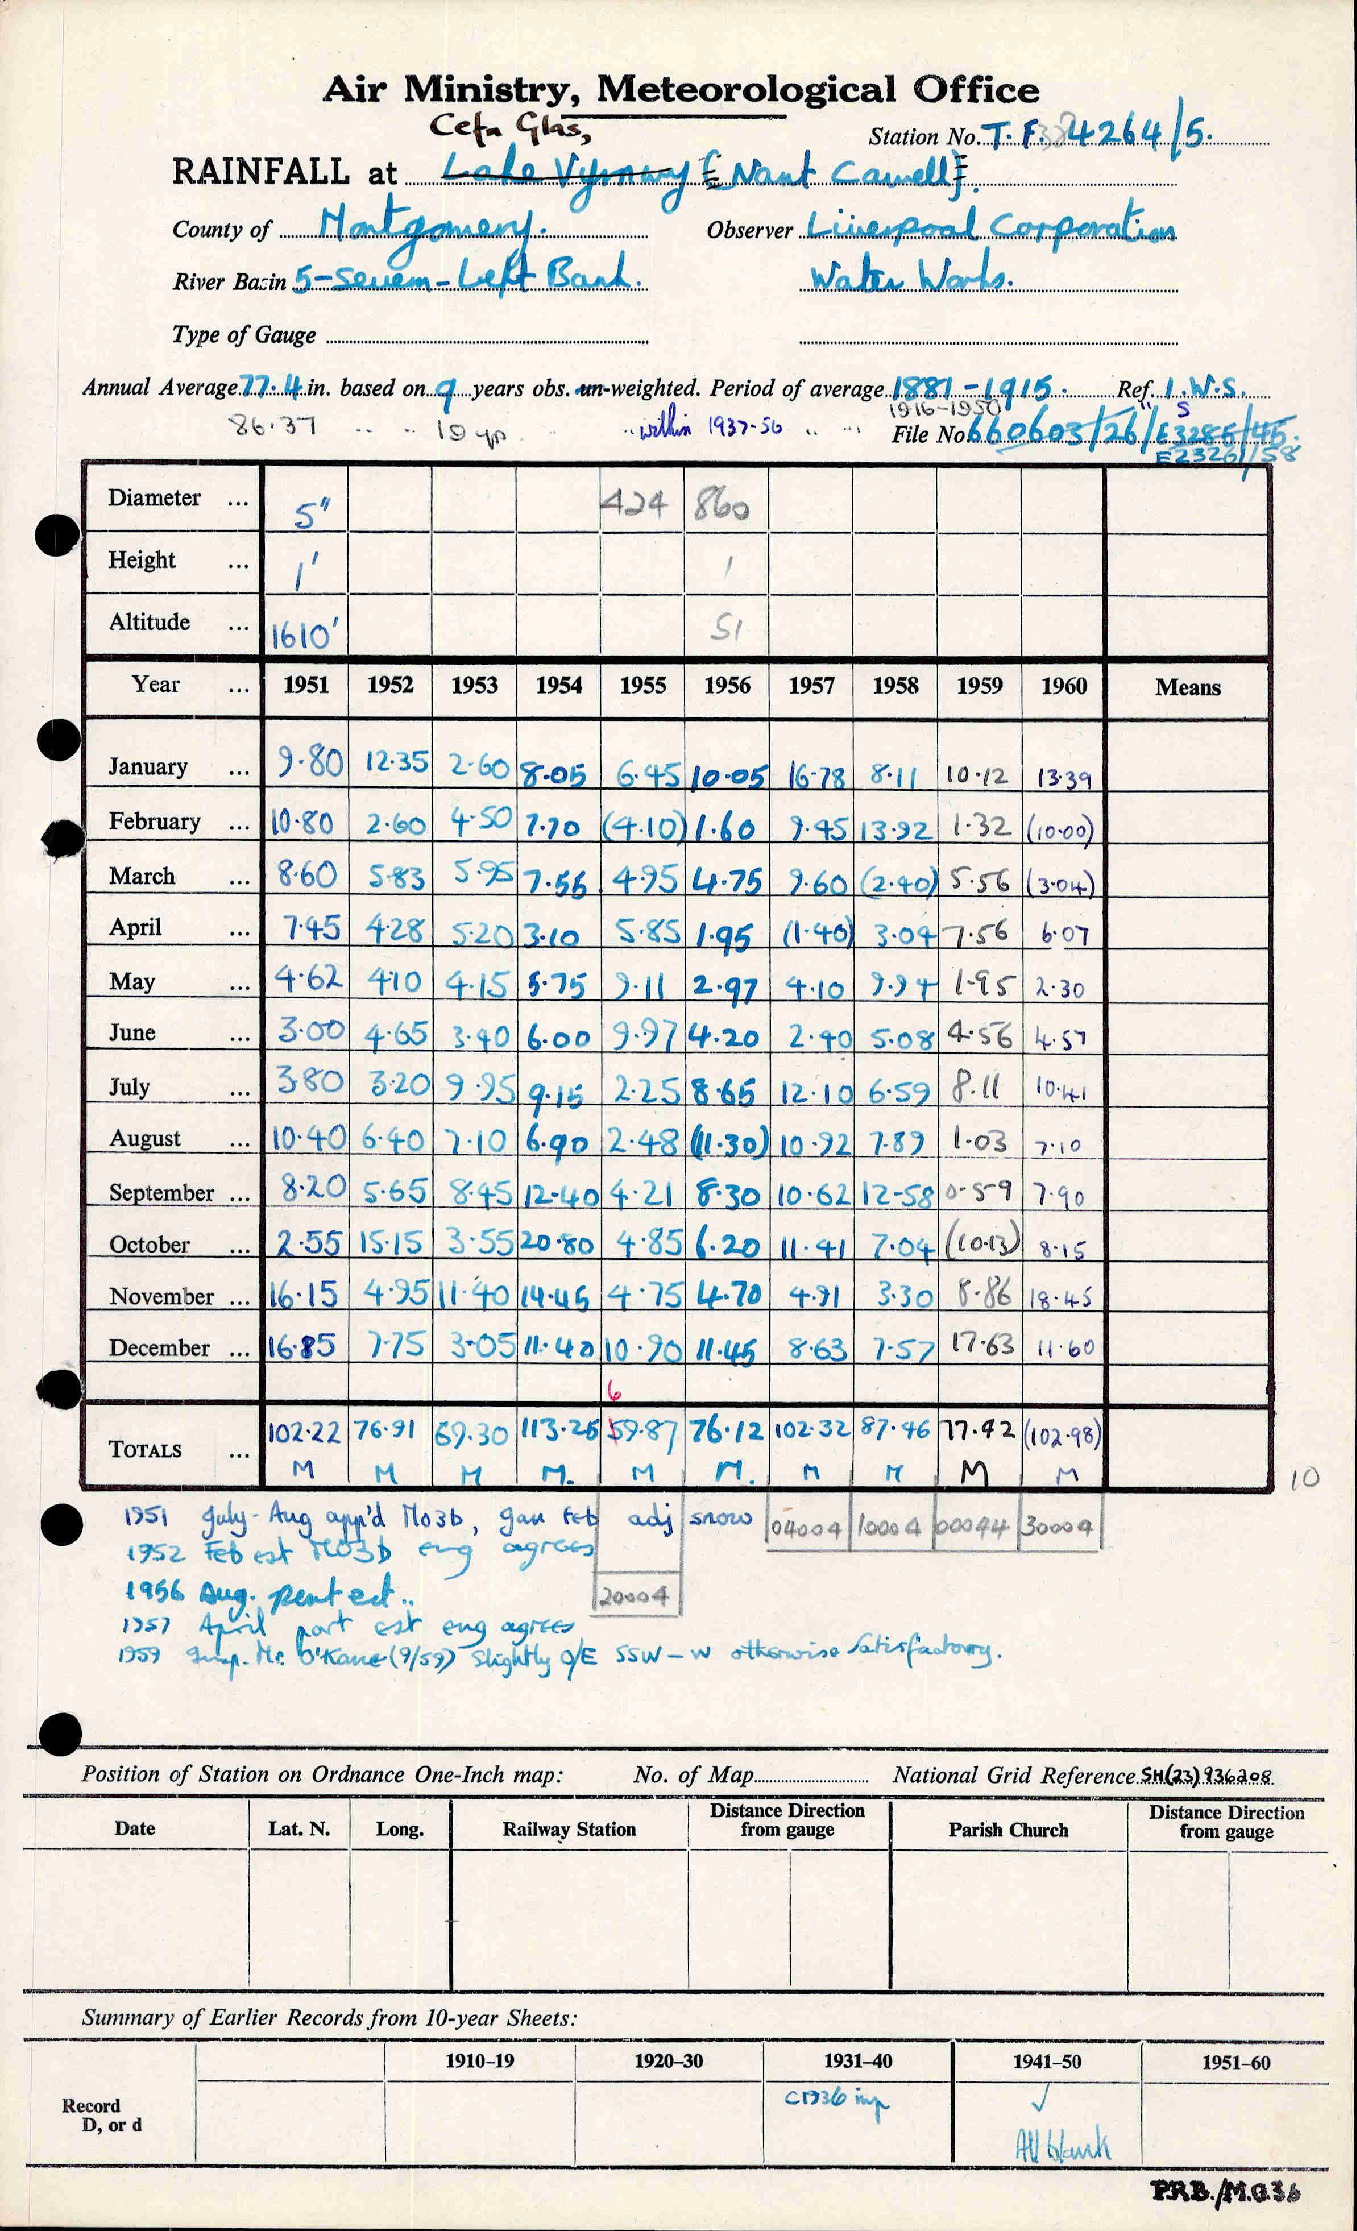 Air Ministry, Meteorological Office
Cefn Glas,
Station No. T.F. 4264/5.
RAINFALL at Lake Vyrnwy [Nant Cawell].
County of Montgomery. Observer Liverpool Corporation
River Basin 5-Severn-Left Bank. Water Works.
Type of Gauge
Annual Average 77.4 in. based on 9 years obs. un-weighted. Period of average 1881-1915. Ref. I.W.S.
86.37 " " 19 yrs " " within 1937-56 " " 1916-1950 " S
File No 660603/26/E3285/45.
E23261/58
Diameter ... 5" 424 860
Height ... 1' 1
Altitude ... 1610' 51
Year ... 1951 1952 1953 1954 1955 1956 1957 1958 1959 1960 Means
January ... 9.80 12.35 2.60 8.05 6.45 10.05 16.78 8.11 10.12 13.39
February ... 10.80 2.60 4.50 7.70 (4.10) 1.60 9.45 13.92 1.32 (10.00)
March ... 8.60 5.83 5.95 7.55 4.95 4.75 9.60 (2.40) 5.56 (3.04)
April ... 7.45 4.28 5.20 3.10 5.85 1.95 (1.40) 3.04 7.56 6.07
May ... 4.62 4.10 4.15 5.75 9.11 2.97 4.10 9.94 1.95 2.30
June ... 3.00 4.65 3.40 6.00 9.97 4.20 2.40 5.08 4.56 4.57
July ... 3.80 3.20 9.95 9.15 2.25 8.65 12.10 6.59 8.11 10.41
August ... 10.40 6.40 7.10 6.90 2.48 (11.30) 10.92 7.89 1.03 7.10
September ... 8.20 5.65 8.45 12.40 4.21 8.30 10.62 12.58 0.59 7.90
October ... 2.55 15.15 3.55 20.80 4.85 6.20 11.41 7.04 (10.13) 8.15
November ... 16.15 4.95 11.40 14.45 4.75 4.70 4.91 3.30 8.86 18.45
December ... 16.85 7.75 3.05 11.40 10.90 11.45 8.63 7.57 17.63 11.60
6
TOTALS ... 102.22 76.91 69.30 113.25 59.87 76.12 102.32 87.46 77.42 (102.98)
M M M M. M M. M M M M 10
1951 July-Aug app'd Mo3b, Jan Feb adj snow 04004 10004 00044 30004
1952 Feb est MO3b eng agrees
1956 Aug. part est.. 20004
1957 April part est eng agrees
1959 Insp. Mr. O'Kane (9/59) Slightly o/E SSW-W otherwise Satisfactory.
Position of Station on Ordnance One-Inch map: No. of Map National Grid Reference SH(23)936208
Date Lat. N. Long. Railway Station Distance Direction from gauge Parish Church Distance Direction from gauge
Summary of Earlier Records from 10-year Sheets:
1910–19 1920–30 1931–40 1941–50 1951–60
Record D, or d C1936 inp ✓
All blank
P.R.B./M.O.3b